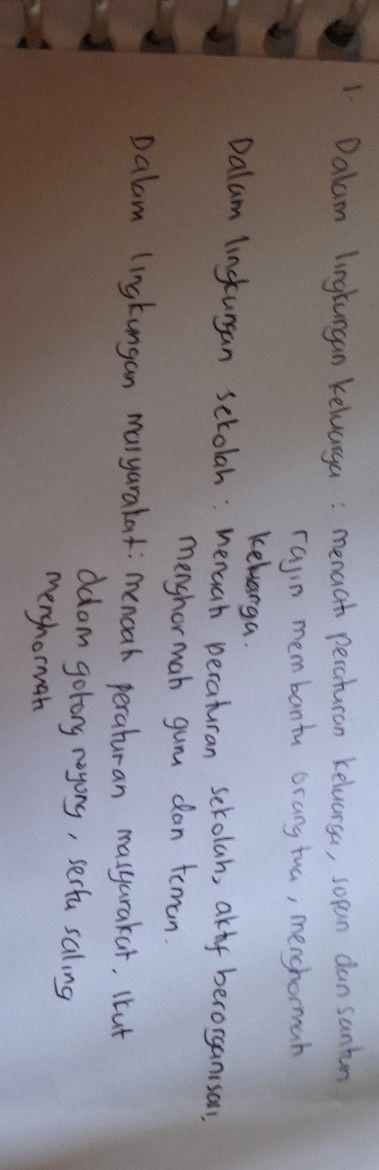 1. Dalam lingkungan keluarga : menaati peraturan keluarga, sopan dan santun
rajin membantu orang tua, menghormati
keluarga.
Dalam lingkungan sekolah : menaati peraturan sekolah, aktif berorganisasi,
menghormati guru dan teman.
Dalam lingkungan masyarakat : menaati peraturan masyarakat, ikut
dalam gotong royong, serta saling
menghormati